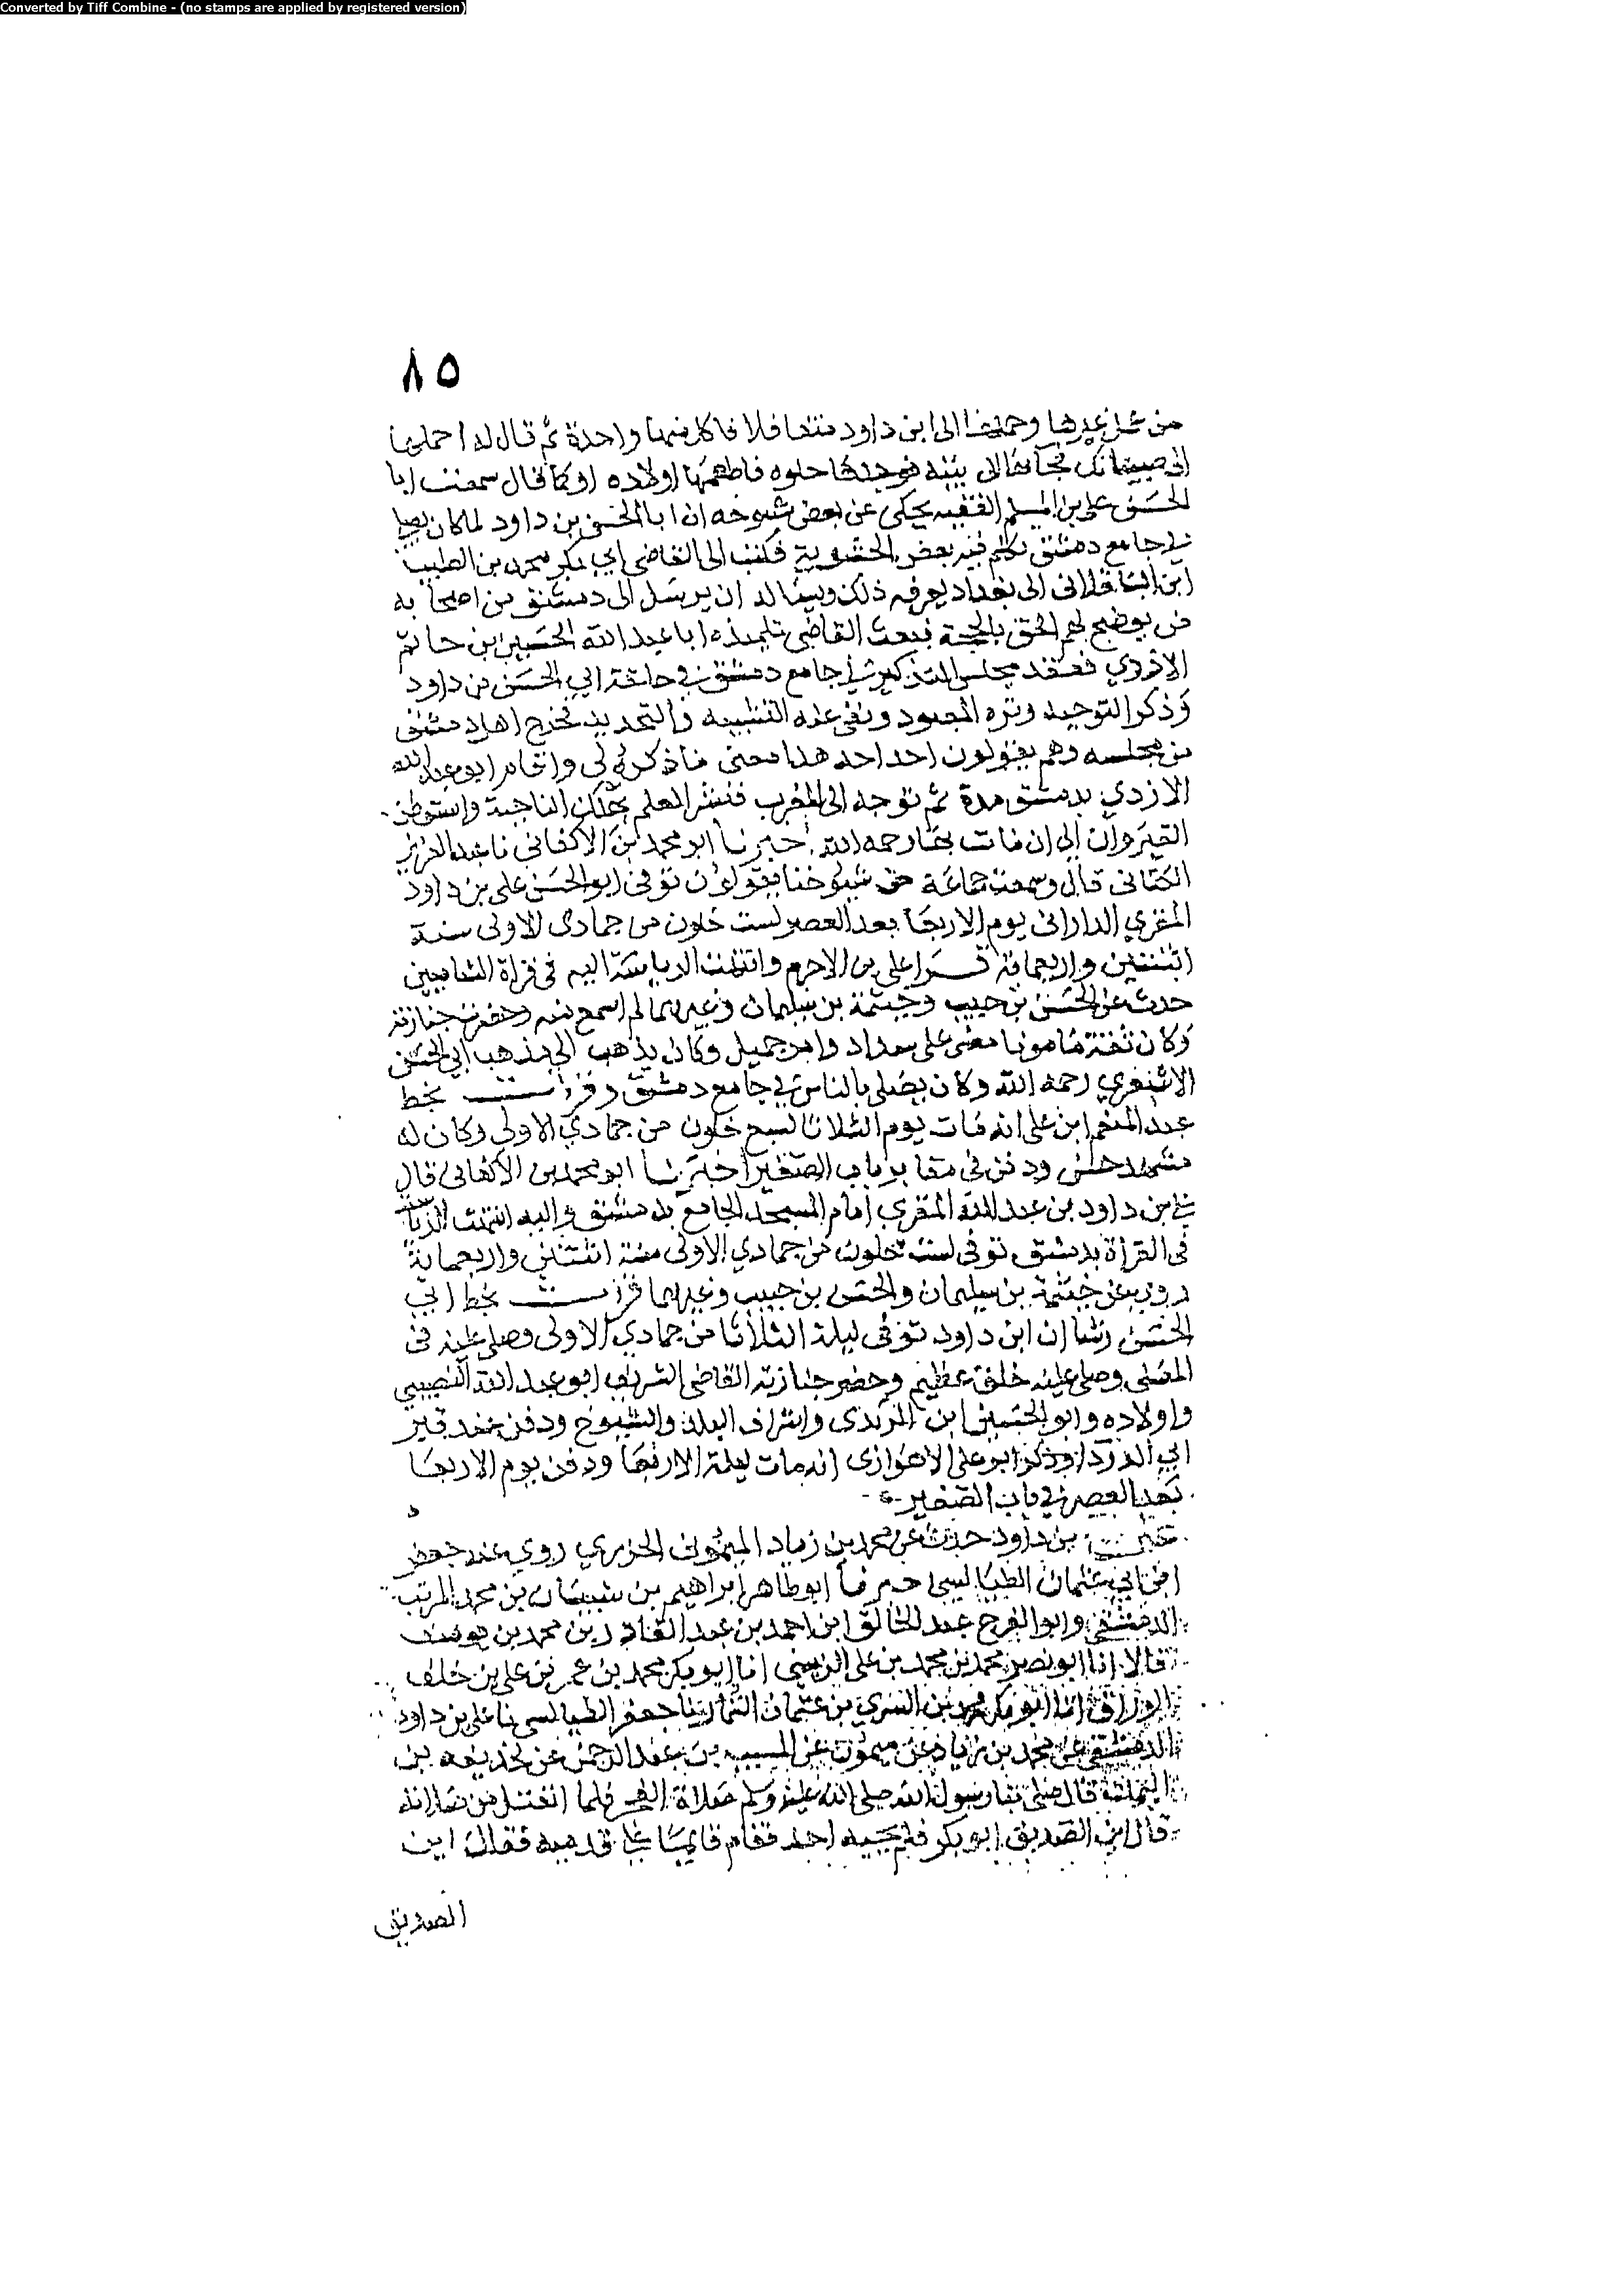 Converted by Tiff Combine - (no stamps are applied by registered version)
٨٥
من غيرها وحملها الى ابن داود متثاقلا فاكل منها واحدة ثم قال له احملها
الى صبيانك فجآ بها الى بيته فوجدها حلوه فاطعمها اولاده او كما قال سمعت ابا
الحسن على بن المسلم الفقيه يحكى عن بعض شيوخه ان ابا الحسن بن داود لما كان يصلي
في جامع دمشق تكلم فيه بعض الحشوية فكتب الى القاضى ابي بكر محمد بن الطيب
ابن الباقلانى الى بغداد يعرفه ذلك ويساله ان يرسل الى دمشق من اصحابه
من يوضح لهم الحق بالحجة فبعث القاضى تلميذه ابا عبد الله الحسين ابن حاتم
الاذدي فعقد مجلس التذكير في جامع دمشق في حلقة ابي الحسن بن داود
وذكر التوحيد ونزه المعبود ونفى عنه التشبيه والتحديد فخرج اهل دمشق
من مجلسه وهم يقولون احد احد هذا معنى ما ذكره لى واقام ابو عبد الله
الازدي بدمشق مدة ثم توجه الى المغرب فنشر العلم بتلك الناحية واستوطن
القيروان الى ان مات بها رحمه الله اخبرنا ابو محمد بن الاكفانى نا عبد العزيز
الكتانى قال وسمعت جماعة من شيوخنا يقولون توفى ابو الحسن على بن داود
المقري الدارانى يوم الاربعا بعد العصر لست خلون من جمادى الاولى سنة
اثنتين واربعماية قرا على بن الاخرم وانتهت الرياسة اليه فى قراة الشاميين
حدث عن الحسن بن حبيب وخيثمة بن سليمان وغيرهما لم اسمع منه وحضرت جنازته
وكان ثقة مامونا مضى على سداد وامر جميل وكان يذهب الى مذهب ابي الحسن
الاشعري رحمه الله وكان يصلى بالناس في جامع دمشق وقرات بخط
عبد المنعم ابن على انه مات يوم الثلاثا لسبع خلون من جمادي الاولى وكان له
مشهد حسن ودفن فى مقابر باب الصغير اخبرنا ابو محمد بن الاكفانى قال
على بن داود بن عبد الله المقري امام المسجد الجامع بدمشق واليه انتهت الرياسة
فى القراة بدمشق توفى لست خلون من جمادي الاولى سنة اثنتين واربعماية
روى عن خيثمة بن سليمان والحسن بن حبيب وغيرهما قرات بخط ابي
الحسن رشا ان ابن داود توفى ليلة الثلاثا من جمادي الاولى وصلى عليه فى
المصلى وصلى عليه خلق عظيم وحضر جنازته القاضى الشريف ابو عبد الله النصيبي
واولاده وابو الحسين ابن المرندى واشراف البلد والشيوخ ودفن عند قبر
ابي الدردا وذكر ابو على الاهوازى انه مات ليلة الاربعا ودفن يوم الاربعا
بعد العصر في باب الصغير
بن داود حدث عن محمد بن زياد الميمونى الجزري روي عنه جعفر
ابن ابي عثمان الطيالسى اخبرنا ابو طاهر ابراهيم بن شيبان بن محمد المرتب
الدمشقى وابو الفرج عبد الخالق ابن احمد بن عبد القادر بن محمد بن يوسف
قالا انا ابو نصر محمد بن محمد بن على الزينبى انا ابو بكر محمد بن عمر بن على بن خلف
الوراق انا ابو بكر محمد بن السري بن عثمان التمار نا جعفر الطيالسى نا على بن داود
الدمشقى عن محمد بن زياد عن ميمون عن المسيب بن عبد الرحمن عن حذيفه بن
اليمان قال صلى بنا رسول الله صلى الله عليه وسلم صلاة الفجر فلما انفتل من صلاته
قال اين الصديق ابو بكر فلم يجبه احد فقام قايما على قدميه فقال اين
الصديق